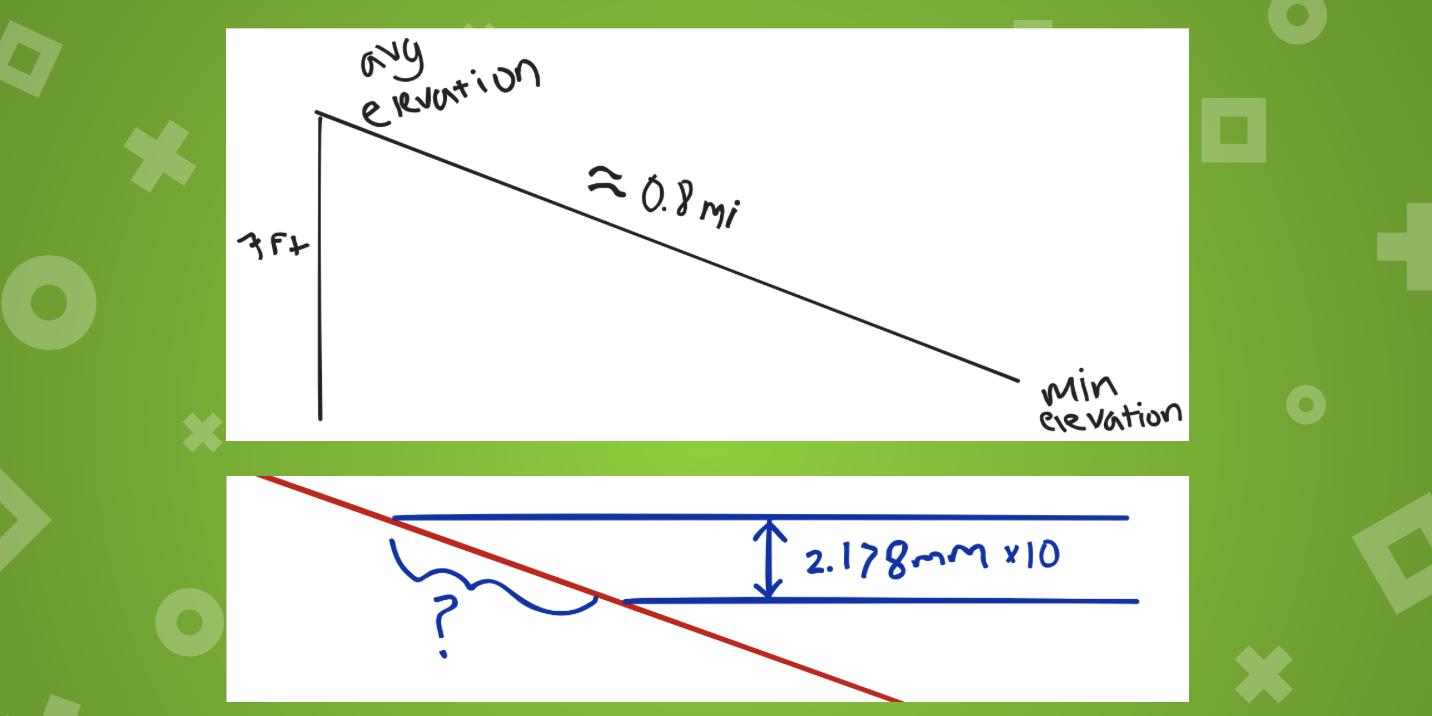 avg
elevation
≈ 0.8 mi
7 Ft
min
elevation
2.178mm ×10
?